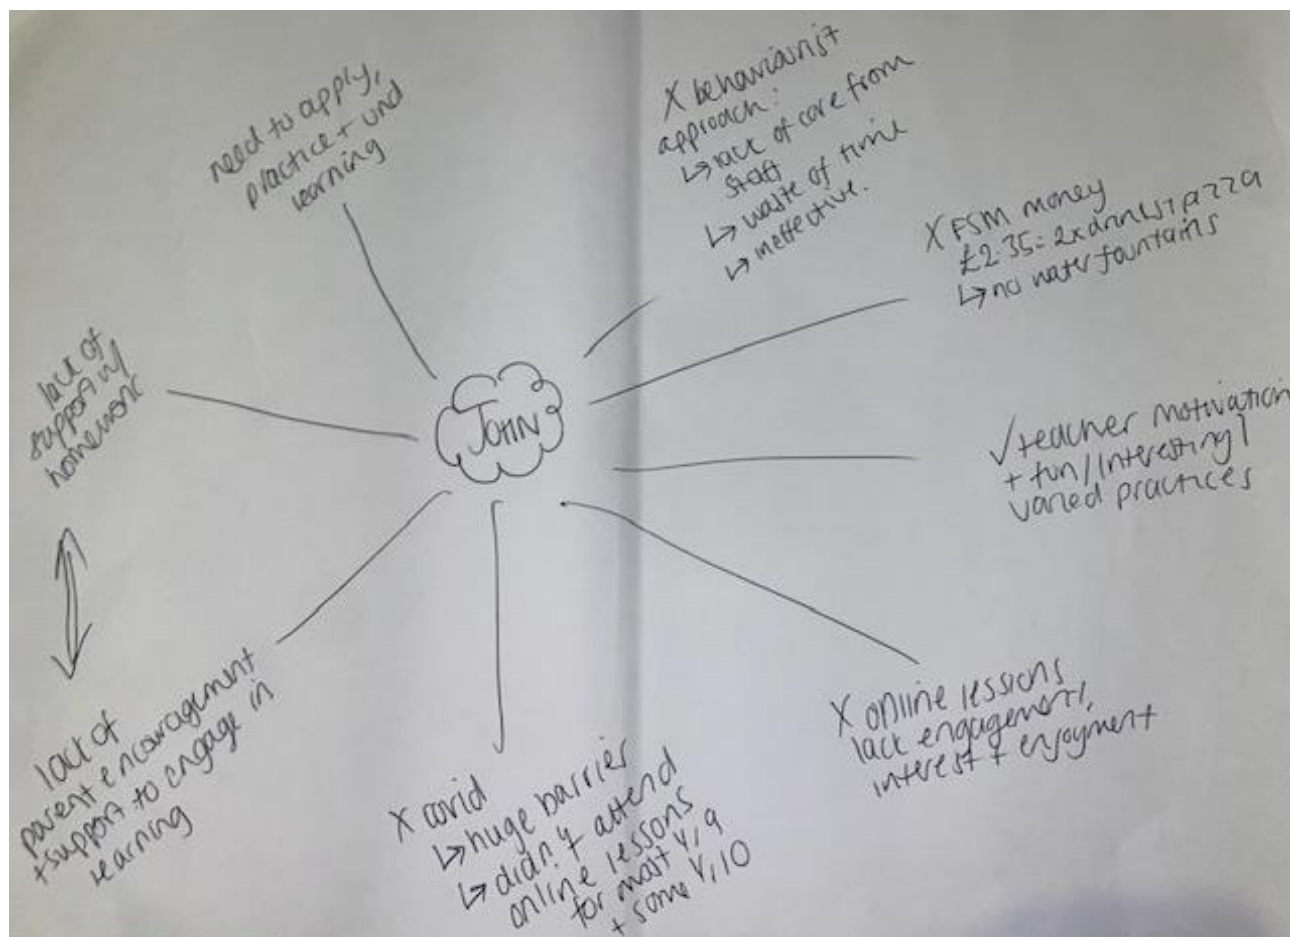 need to apply,
practice + und
learning
X behaviourist
approach:
↳ lack of care from
staff
↳ waste of time
↳ ineffective.
X FSM money
£2.35 = 2x drinks, pizza
↳ no water fountains
✓ teacher motivation
+ fun/interesting/
varied practices
X online lessons
lack engagement,
interest + enjoyment
X covid
↳ huge barrier
↳ didn't attend
online lessons
for most Y,9
+ some Y,10
lack of
parent encouragement
+ support to engage in
learning
lack of
support w/
homework
JOHN